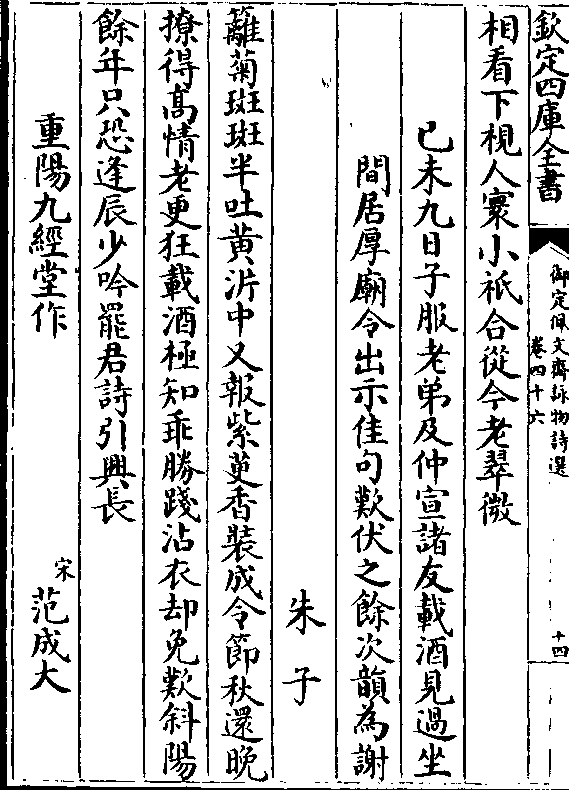 欽定四庫全書
御定佩文齋詠物詩選
卷四十六
十四
相看下視人寰小祇合從今老翠微
已未九日子服老弟及仲宣諸友載酒見過坐
間居厚廟令出示佳句歎伏之餘次韻為謝
朱子
籬菊斑斑半吐黄沂中又報紫萸香裝成令節秋還晚
撩得髙情老更狂載酒極知乖勝踐沾衣却免歎斜陽
餘年只恐逢辰少吟罷君詩引興長
重陽九經堂作
宋
范成大